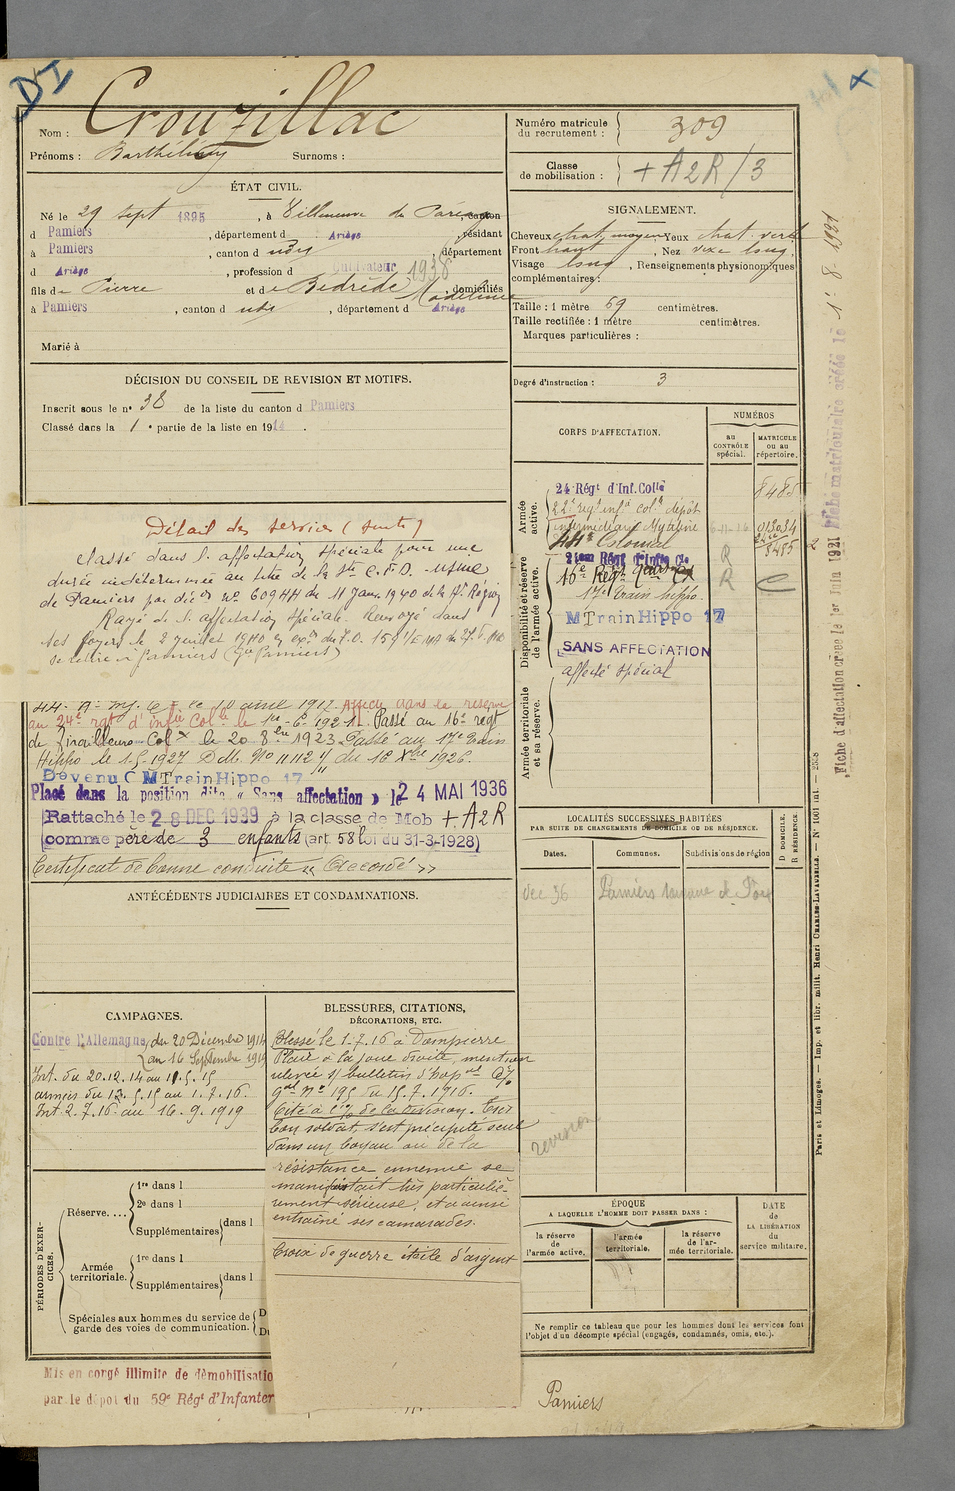 DI
Nom : Crouzillac
Prénoms : Barthélémy Surnoms :
ÉTAT CIVIL.
Né le 29 sept 1895, à Villeneuve du Paréage, canton
d Pamiers, département d Ariège, résidant
à Pamiers, canton d udis, département
d Ariège, profession d Cultivateur 1938
fils de Pierre et de Bedrède Madeleine, domiciliés
à Pamiers, canton d udis, département d Ariège
Marié à
DÉCISION DU CONSEIL DE REVISION ET MOTIFS.
Inscrit sous le n° 38 de la liste du canton d Pamiers
Classé dans la 1e partie de la liste en 1914.
Détail des services (suite)
Classé dans l'affectation spéciale pour une
durée indéterminée au titre de la Ste C.F.D. - usine
de Pamiers par déc on N° 609HH du 11 Janv 1940 de la 17e Région
Rayé de l'affectation spéciale. Renvoyé dans
ses foyers le 2 Juillet 1940
se retire à Pamiers
le 10 avril 1917. Affecté dans la réserve
au 24e rgt d'infie Colle le 1er-6-1921. Passé au 16e regt
de Tirailleurs Colx le 20 8bre 1923. Passé au 17e Train
Hippo le 1.5.1927 D.M. No 11112 du 16 Xbre 1926.
Devenu CM Train Hippo 17
Placé dans la position dite « Sans affectation » le 24 MAI 1936
Rattaché le 28 DEC 1939 à la classe de Mob + A2R
comme père de 3 enfants (art. 58 loi du 31-3-1928)
Certificat de bonne conduite « Accordé »
ANTÉCÉDENTS JUDICIAIRES ET CONDAMNATIONS.
CAMPAGNES.
Contre l'Allemagne, du 20 Décembre 1914
au 16 Septembre 1919
Int. du 20.12.14 au 11.5.15
armées du 12.5.15 au 1.7.16.
Int 2.7.16 au 16.9.1919
BLESSURES, CITATIONS,
DÉCORATIONS, ETC.
Blessé le 1.7.16 à Dompierre
Plaie à la joue droite, mention
relevée s/ bulletin d'hopal
N° 195 du 15.7.1916.
Cité à l'o/ de la division. Très
bon soldat, s'est précipité seul
dans un boyau où de la
résistance ennemie se
manifestait très particuliè-
rement sérieuse, et a ainsi
entraîné ses camarades.
Croix de guerre étoile d'argent
PÉRIODES D'EXER-
CICES.
Réserve....
1re dans l
2e dans l
Supplémentaires dans l
Armée
territoriale.
1re dans l
Supplémentaires dans l
Spéciales aux hommes du service de
garde des voies de communication.
Mis en congé illimité de démobilisatio
par le dépôt du 59e Régt d'Infanter
Numéro matricule
du recrutement : 309
Classe
de mobilisation : + A2R/3
SIGNALEMENT.
Cheveux chat. moyen, Yeux chat. verd
Front haut, Nez vexe long,
Visage long, Renseignements physionomiques
complémentaires :
Taille : 1 mètre 69 centimètres.
Taille rectifiée : 1 mètre centimètres.
Marques particulières :
Degré d'instruction : 3
CORPS D'AFFECTATION.
NUMÉROS
au
CONTRÔLE
spécial.
MATRICULE
ou au
répertoire.
Armée
active.
24 Régt d'Inf. Colle 8485
22e régt infie colle dépôt
intermédiaire Mytilène 013034
44e Colonial 8485
Disponibilité et réserve
de l'armée active.
24em Régt d'Infie Cle R
16e Régt R
17e Train hippo.
M Train Hippo 17
SANS AFFECTATION
affecté spécial
Armée territoriale
et sa réserve.
LOCALITÉS SUCCESSIVES HABITÉES
PAR SUITE DE CHANGEMENTS DE DOMICILE OU DE RÉSIDENCE.
Dates.
Communes.
Subdivisions de région
D DOMICILE.
R RÉSIDENCE
Dec 36 Pamiers
revision
ÉPOQUE
A LAQUELLE L'HOMME DOIT PASSER DANS :
la réserve
de
l'armée active.
l'armée
territoriale.
la réserve
de l'ar-
mée territoriale.
DATE
de
LA LIBÉRATION
du
service militaire.
Ne remplir ce tableau que pour les hommes dont les services font
l'objet d'un décompte spécial (engagés, condamnés, omis, etc.).
Pamiers
Fiche d'affectation créée le 1er Juin 1921 Fiche matriculaire créée le 1-8-1921
Paris et Limoges. — Imp. et libr. milit. Henri CHARLES-LAVAUZELLE. — N° 1001 int. — 2538